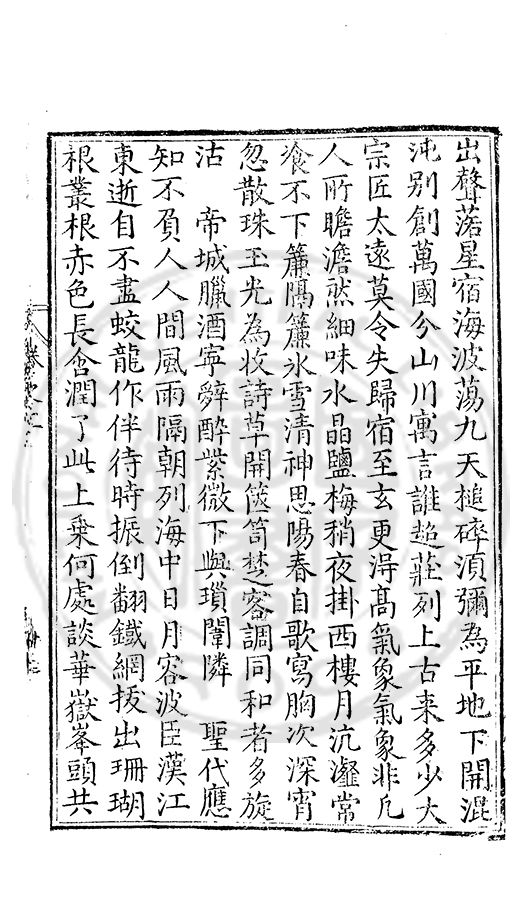 出聲落星宿海波蕩九天槌碎湏彌為平地下開混
沌別創萬國分山川寓言誰超莊列上古来多少大
宗匠太遠莫令失歸宿至玄更淂髙氣象氣象非凡
人所瞻澹然細味水晶鹽梅稍夜掛西樓月沆瀣常
飡不下簾隔簾氷雪清神思陽春自歌寫胸次深宵
忽散珠玉光為收詩草開篋笥楚客調同和者多旋
沽　帝城臘酒寜辤醉紫微下與瑣闈隣　聖代應
知不負人人間風雨隔朝列海中日月容波臣漢江
東逝自不盡蛟龍作伴待時振倒翻鐵網拔出珊瑚
根叢根赤色長含潤了此上乗何處談華嶽峯頭共